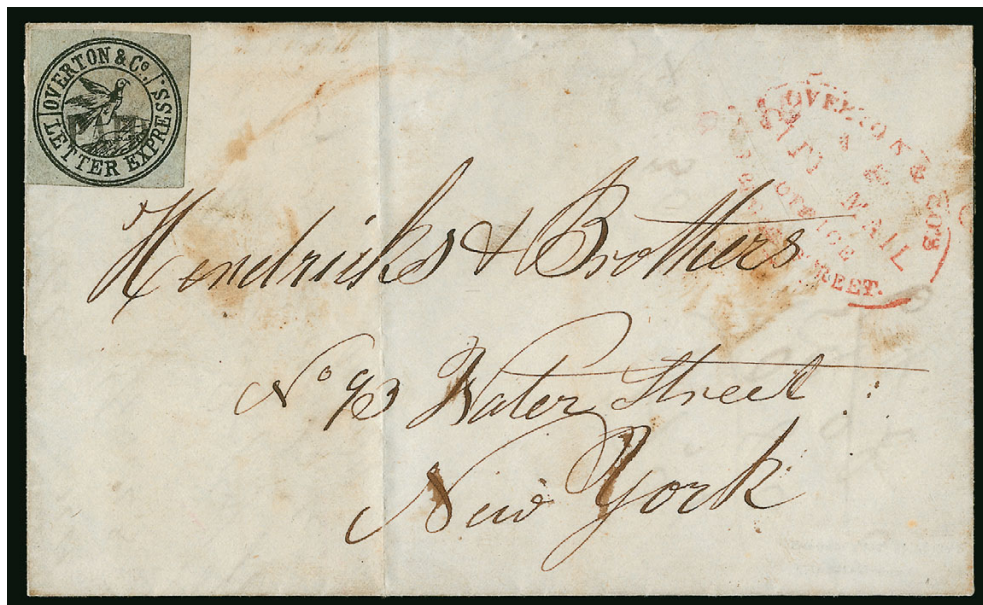 OVERTON & Co.
LETTER EXPRESS
OVERTON & CO'S
MAIL
OFFICE
STREET.
Hendricks & Brothers
No 93 Water Street
New York